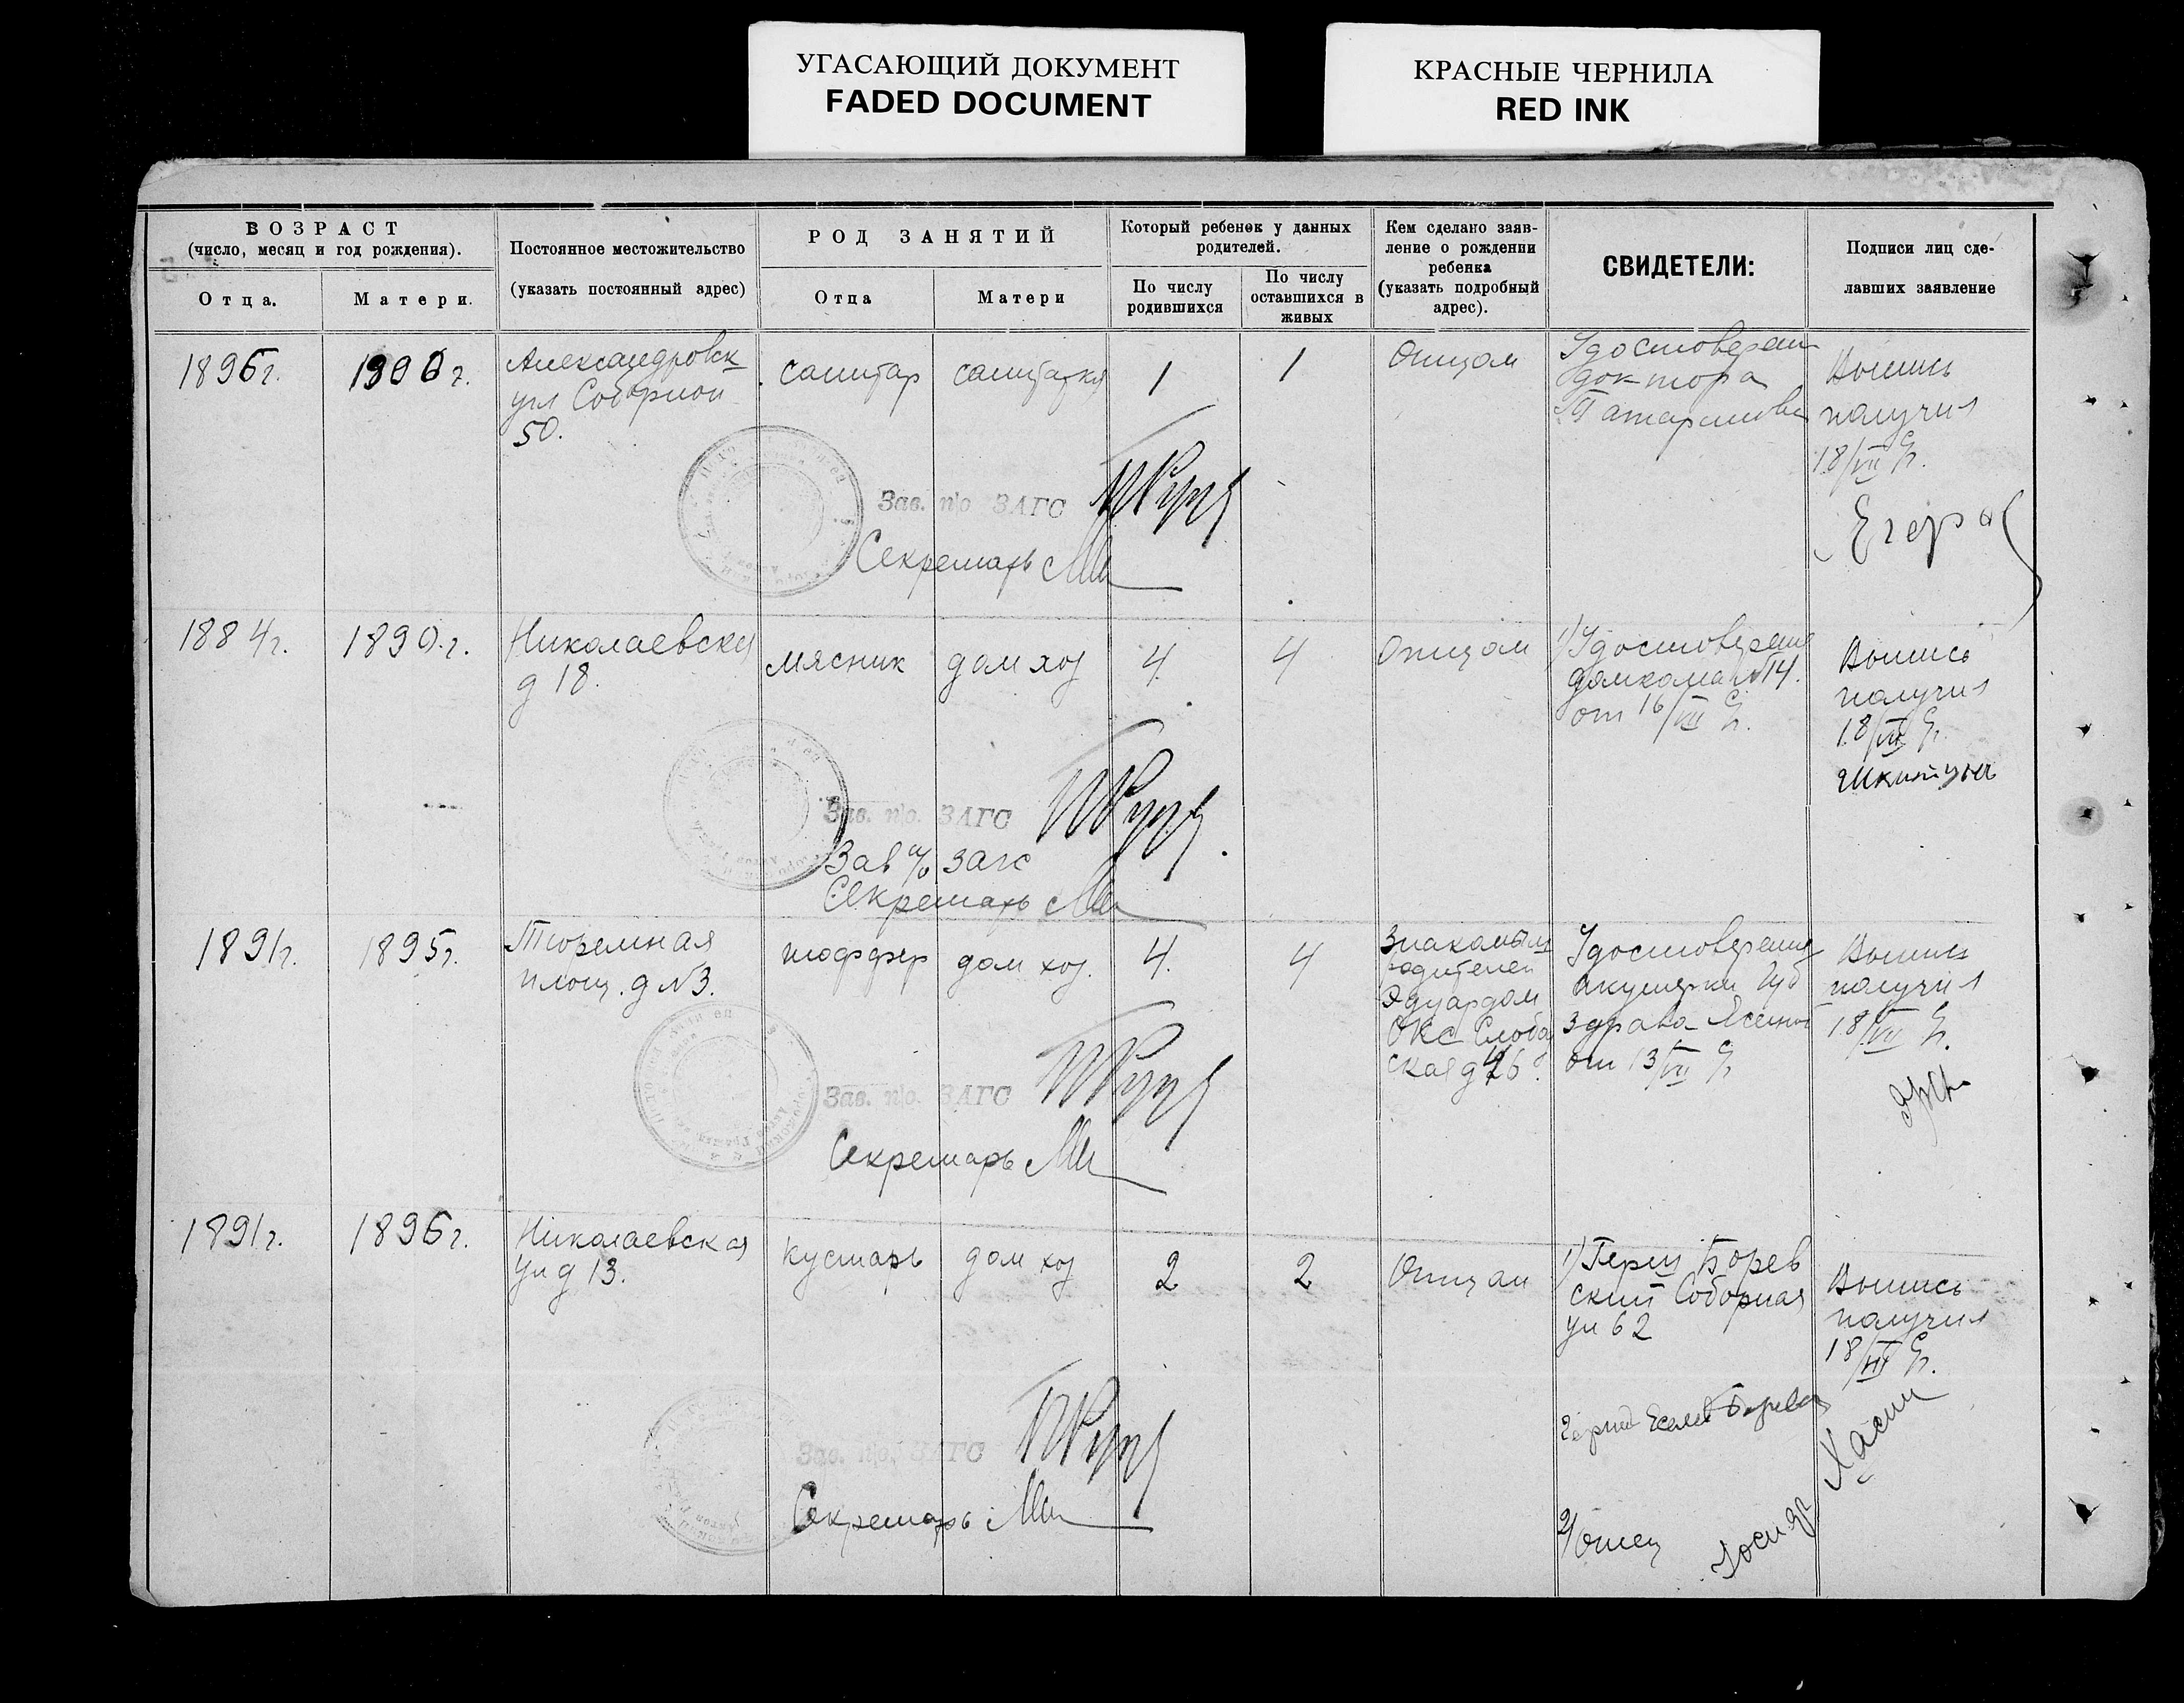 УГАСАЮЩИЙ ДОКУМЕНТ
FADED DOCUMENT
КРАСНЫЕ ЧЕРНИЛА
RED INK
ВОЗРАСТ
(число, месяц и год рождения).
Отца.
Матери.
Постоянное местожительство
(указать постоянный адрес)
РОД ЗАНЯТИЙ
Отца
Матери
Который ребенок у данных
родителей.
По числу
родившихся
По числу
оставшихся в
живых
Кем сделано заяв-
ление о рождении
ребенка
(указать подробный
адрес).
СВИДЕТЕЛИ:
Подписи лиц сде-
лавших заявление
1896г.
1900г.
Александровск
угл Соборной
50.
санитар
санитарка
1
1
Отцом
Удостоверен
доктора
Выпись
получил
18/VII
Зав. п/о ЗАГС
Секретарь
Егеров
1884г.
1890.г.
Николаевская
д 18.
мясник
дом хоз
4.
4
Отцом
1) Удостоверение
домкома N14.
от 16/VII
Выпись
получил
18/VII
Зав. п/о. ЗАГС
Зав п/о загс
Секретарь
1891г.
1895г.
Тюремная
площ. д N3.
шоффер
дом хоз.
4.
4
Знакомым
родителей
Эдуардом
Окс Слобо
ская д
Удостоверение
акушерки Губ
здрава
от 13/VII
Выпись
получил
18/VII
Зав. п/о. ЗАГС
Секретарь
1891г.
1896г.
Николаевская
ул д 13.
кустарь
дом хоз
2
2
Отцом
1) Герш Борев
ский Соборная
ул 62
Выпись
получил
18/VII
Зав. п/о. ЗАГС
Секретарь
2/ Отец
Хасин